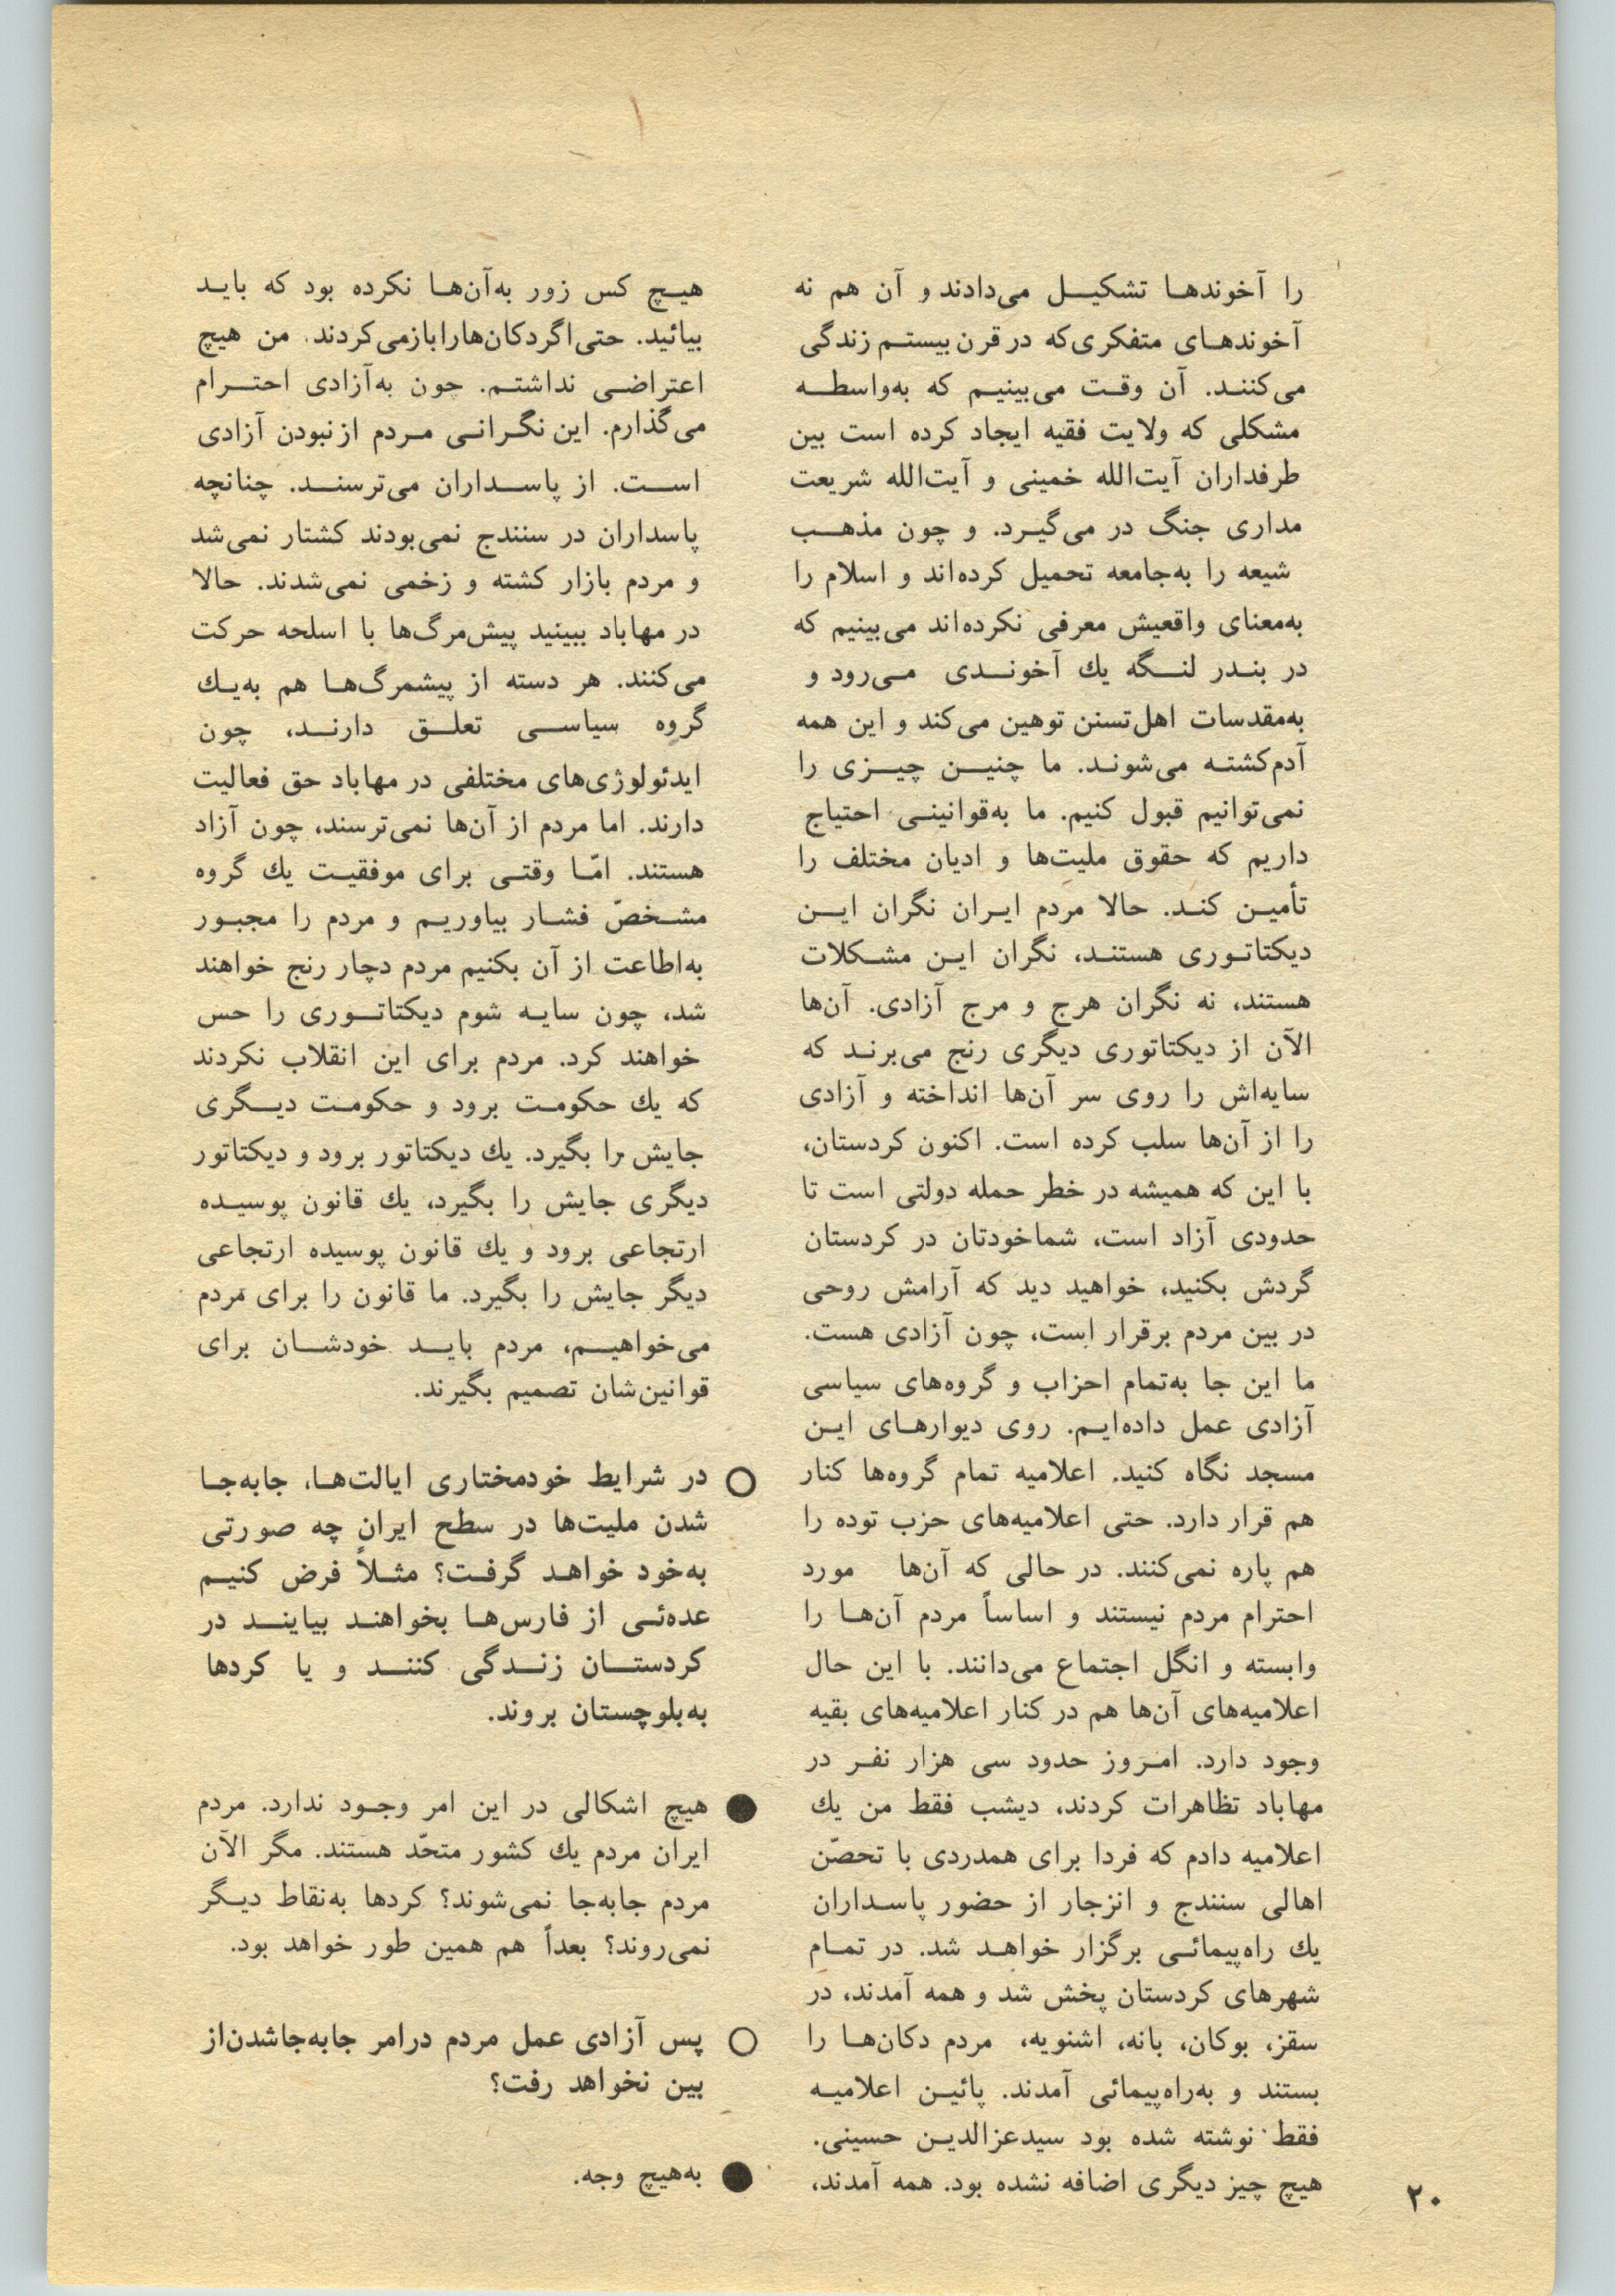 را آخوندها تشکیل می‌دادند و آن هم نه
آخوندهای متفکری‌که در قرن بیستم زندگی
می‌کنند. آن وقت می‌بینیم که به‌واسطه
مشکلی که ولایت فقیه ایجاد کرده است بین
طرفداران آیت‌الله خمینی و آیت‌الله شریعت
مداری جنگ در می‌گیرد. و چون مذهب
شیعه را به‌جامعه تحمیل کرده‌اند و اسلام را
به‌معنای واقعیش معرفی نکرده‌اند می‌بینیم که
در بندر لنگه یك آخوندی می‌رود و
به‌مقدسات اهل‌تسنن توهین می‌کند و این همه
آدم‌کشته می‌شوند. ما چنین چیزی را
نمی‌توانیم قبول کنیم. ما به‌قوانینی احتیاج
داریم که حقوق ملیت‌ها و ادیان مختلف را
تأمین کند. حالا مردم ایران نگران این
دیکتاتوری هستند، نگران این مشکلات
هستند، نه نگران هرج و مرج آزادی. آن‌ها
الآن از دیکتاتوری دیگری رنج می‌برند که
سایه‌اش را روی سر آن‌ها انداخته و آزادی
را از آن‌ها سلب کرده است. اکنون کردستان،
با این که همیشه در خطر حمله دولتی است تا
حدودی آزاد است، شماخودتان در کردستان
گردش بکنید، خواهید دید که آرامش روحی
در بین مردم برقرار است، چون آزادی هست.
ما این جا به‌تمام احزاب و گروه‌های سیاسی
آزادی عمل داده‌ایم. روی دیوارهای این
مسجد نگاه کنید. اعلامیه تمام گروه‌ها کنار
هم قرار دارد. حتی اعلامیه‌های حزب توده را
هم پاره نمی‌کنند. در حالی که آن‌ها مورد
احترام مردم نیستند و اساساً مردم آن‌ها را
وابسته و انگل اجتماع می‌دانند. با این حال
اعلامیه‌های آن‌ها هم در کنار اعلامیه‌های بقیه
وجود دارد. امروز حدود سی هزار نفر در
مهاباد تظاهرات کردند، دیشب فقط من یك
اعلامیه دادم که فردا برای همدردی با تحصّن
اهالی سنندج و انزجار از حضور پاسداران
یك راه‌پیمائی برگزار خواهد شد. در تمام
شهرهای کردستان پخش شد و همه آمدند، در
سقز، بوکان، بانه، اشنویه، مردم دکان‌ها را
بستند و به‌راه‌پیمائی آمدند. پائین اعلامیه
فقط نوشته شده بود سیدعزالدین حسینی.
هیچ چیز دیگری اضافه نشده بود. همه آمدند،
هیچ کس زور به‌آن‌ها نکرده بود که باید
بیائید. حتی‌اگردکان‌هارابازمی‌کردند. من هیچ
اعتراضی نداشتم. چون به‌آزادی احترام
می‌گذارم. این نگرانی مردم از نبودن آزادی
است. از پاسداران می‌ترسند. چنانچه
پاسداران در سنندج نمی‌بودند کشتار نمی‌شد
و مردم بازار کشته و زخمی نمی‌شدند. حالا
در مهاباد ببینید پیش‌مرگ‌ها با اسلحه حرکت
می‌کنند. هر دسته از پیشمرگ‌ها هم به‌یك
گروه سیاسی تعلق دارند، چون
ایدئولوژی‌های مختلفی در مهاباد حق فعالیت
دارند. اما مردم از آن‌ها نمی‌ترسند، چون آزاد
هستند. امّا وقتی برای موفقیت یك گروه
مشخصّ فشار بیاوریم و مردم را مجبور
به‌اطاعت از آن بکنیم مردم دچار رنج خواهند
شد، چون سایه شوم دیکتاتوری را حس
خواهند کرد. مردم برای این انقلاب نکردند
که یك حکومت برود و حکومت دیگری
جایش را بگیرد. یك دیکتاتور برود و دیکتاتور
دیگری جایش را بگیرد، یك قانون پوسیده
ارتجاعی برود و یك قانون پوسیده ارتجاعی
دیگر جایش را بگیرد. ما قانون را برای مردم
می‌خواهیم، مردم باید خودشان برای
قوانین‌شان تصمیم بگیرند.
○ در شرایط خودمختاری ایالت‌ها، جابه‌جا
شدن ملیت‌ها در سطح ایران چه صورتی
به‌خود خواهد گرفت؟ مثلاً فرض کنیم
عده‌ئی از فارس‌ها بخواهند بیایند در
کردستان زندگی کنند و یا کردها
به‌بلوچستان بروند.
● هیچ اشکالی در این امر وجود ندارد. مردم
ایران مردم یك کشور متحّد هستند. مگر الآن
مردم جابه‌جا نمی‌شوند؟ کردها به‌نقاط دیگر
نمی‌روند؟ بعداً هم همین طور خواهد بود.
○ پس آزادی عمل مردم درامر جابه‌جاشدن‌از
بین نخواهد رفت؟
● به‌هیچ وجه.
۲۰